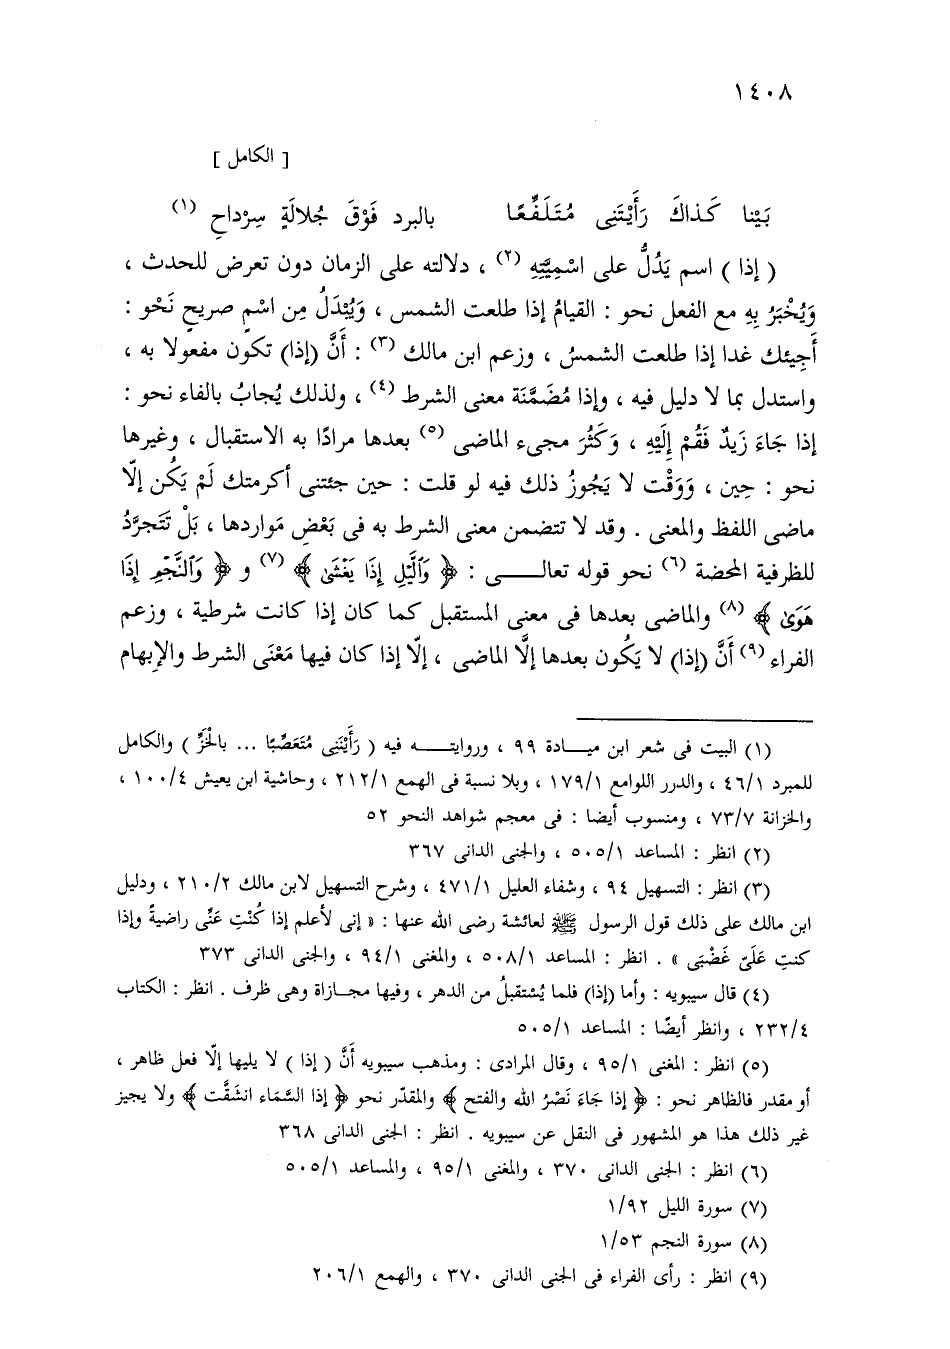 ١٤٠٨
[ الكامل ]
بَيْنا كَذاكَ رَأَيْتَنِى مُتَلَفِّعًا بالبرد فَوْقَ جُلالَةٍ سِرْداحِ (١)
( إذا ) اسم يَدُلُّ على اسْمِيَّتِهِ (٢) ، دلالته على الزمان دون تعرض للحدث ،
وَيُخْبَرُ بِهِ مع الفعل نحو : القيامُ إذا طلعت الشمس ، وَيُبْدَلُ مِن اسْمٍ صريحٍ نَحْو :
أَجِيئك غدا إذا طلعت الشمسُ ، وزعم ابن مالك (٣) : أَنَّ (إذا) تكون مفعولا به ،
واستدل بما لا دليل فيه ، وإذا مُضَمَّنَة معنى الشرط (٤) ، ولذلك يُجابُ بالفاء نحو :
إذا جَاءَ زَيدٌ فَقُمْ إِلَيْهِ ، وَكَثُرَ مجىء الماضى (٥) بعدها مرادًا به الاستقبال ، وغيرها
نحو : حِين ، وَوَقْت لا يَجُوزُ ذلك فيه لو قلت : حين جئتنى أكرمتك لَمْ يَكُن إلّا
ماضى اللفظ والمعنى . وقد لا تتضمن معنى الشرط به فى بَعْضِ مَواردها ، بَلْ تَتَجرَّدُ
للظرفية المحضة (٦) نحو قوله تعالـــى : ﴿ وَٱلَّيْلِ إِذَا يَغْشَىٰ ﴾ (٧) و ﴿ وَٱلنَّجْمِ إِذَا
هَوَىٰ ﴾ (٨) والماضى بعدها فى معنى المستقبل كما كان إذا كانت شرطية ، وزعم
الفراء (٩) أَنَّ (إذا) لا يَكُون بعدها إلَّا الماضى ، إلّا إذا كان فيها مَعْنَى الشرط والإبهام
(١) البيت فى شعر ابن ميـــادة ٩٩ ، وروايتـــه فيه ( رَأَيْتَنِى مُتَعَصِّبًا ... بالْخَزِّ ) والكامل
للمبرد ٤٦/١ ، والدرر اللوامع ١٧٩/١ ، وبلا نسبة فى الهمع ٢١٢/١ ، وحاشية ابن يعيش ١٠٠/٤ ،
والخزانة ٧٣/٧ ، ومنسوب أيضا : فى معجم شواهد النحو ٥٢
(٢) انظر : المساعد ٥٠٥/١ ، والجنى الدانى ٣٦٧
(٣) انظر : التسهيل ٩٤ ، وشفاء العليل ٤٧١/١ ، وشرح التسهيل لابن مالك ٢١٠/٢ ، ودليل
ابن مالك على ذلك قول الرسول ﷺ لعائشة رضى الله عنها : « إنى لأعلم إذا كُنْتِ عَنِّى راضيةً وإذا
كنتِ عَلَىّ غَضْبَى » . انظر : المساعد ٥٠٨/١ ، والمغنى ٩٤/١ ، والجنى الدانى ٣٧٣
(٤) قال سيبويه : وأما (إذا) فلما يُسْتقبلُ من الدهر ، وفيها مجـازاة وهى ظرف . انظر : الكتاب
٢٣٢/٤ ، وانظر أيضًا : المساعد ٥٠٥/١
(٥) انظر : المغنى ٩٥/١ ، وقال المرادى : ومذهب سيبويه أَنَّ ( إذا ) لا يليها إلّا فعل ظاهر ،
أو مقدر فالظاهر نحو : ﴿ إذا جَاءَ نَصْرُ الله والفتح ﴾ والمقدّر نحو ﴿ إذا السَّمَاء انشَقَّت ﴾ ولا يجيز
غير ذلك هذا هو المشهور فى النقل عن سيبويه . انظر : الجنى الدانى ٣٦٨
(٦) انظر : الجنى الدانى ٣٧٠ ، والمغنى ٩٥/١ ، والمساعد ٥٠٥/١
(٧) سورة الليل ١/٩٢
(٨) سورة النجم ١/٥٣
(٩) انظر : رأى الفراء فى الجنى الدانى ٣٧٠ ، والهمع ٢٠٦/١